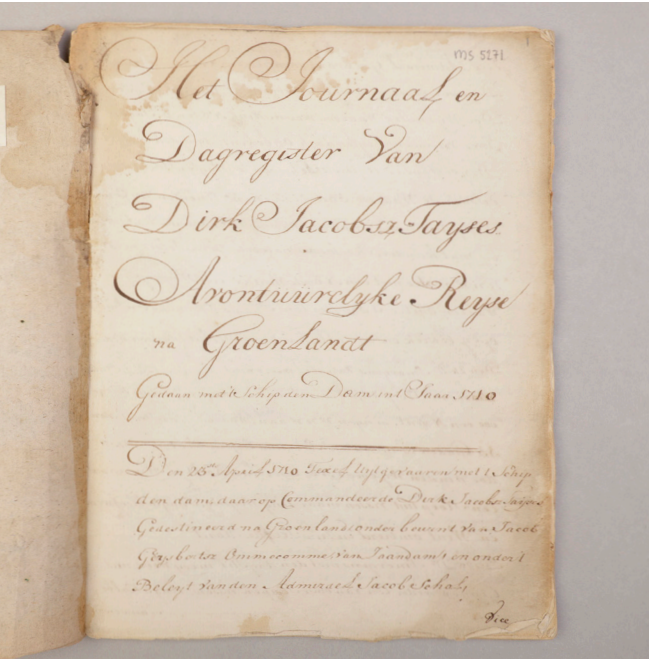 MS 5271
1
Het Journaal en
Dagregister Van
Dirk Jacobsz Tayses
Avontuurelyke Reyse
na Groenlandt
Gedaan met 't Schip den Dam int Jaar 1710
Den 26en April 1710 Texel Uytgevaaren met 't Schip
den dam, daar op Commandeerde Dirk Jacobsz Tayses
Gedestineerd na Groenland onder bevert van Jacob
Gysbertsz Ommecomme van Zaandam, en onder 't
Beleyt van den Admirael Jacob Schol,